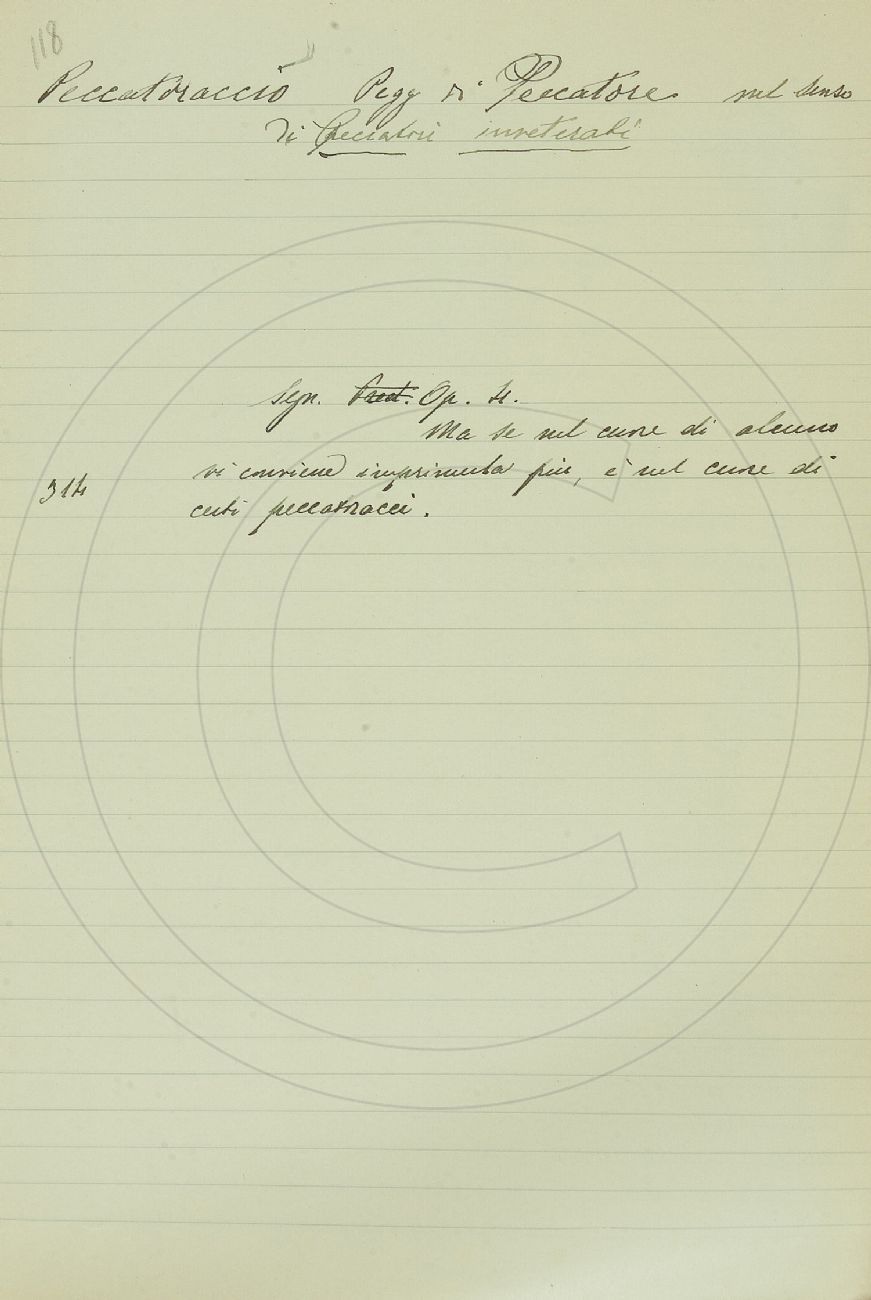 118
Peccatoraccio Pegg di Peccatore nel senso
di Peccatori inveterati
Segn. Pred. Op. 4.
Ma se nel cuore di alcuno
vi conviene imprimerla più, è nel cuore di
314
certi peccatoracci.